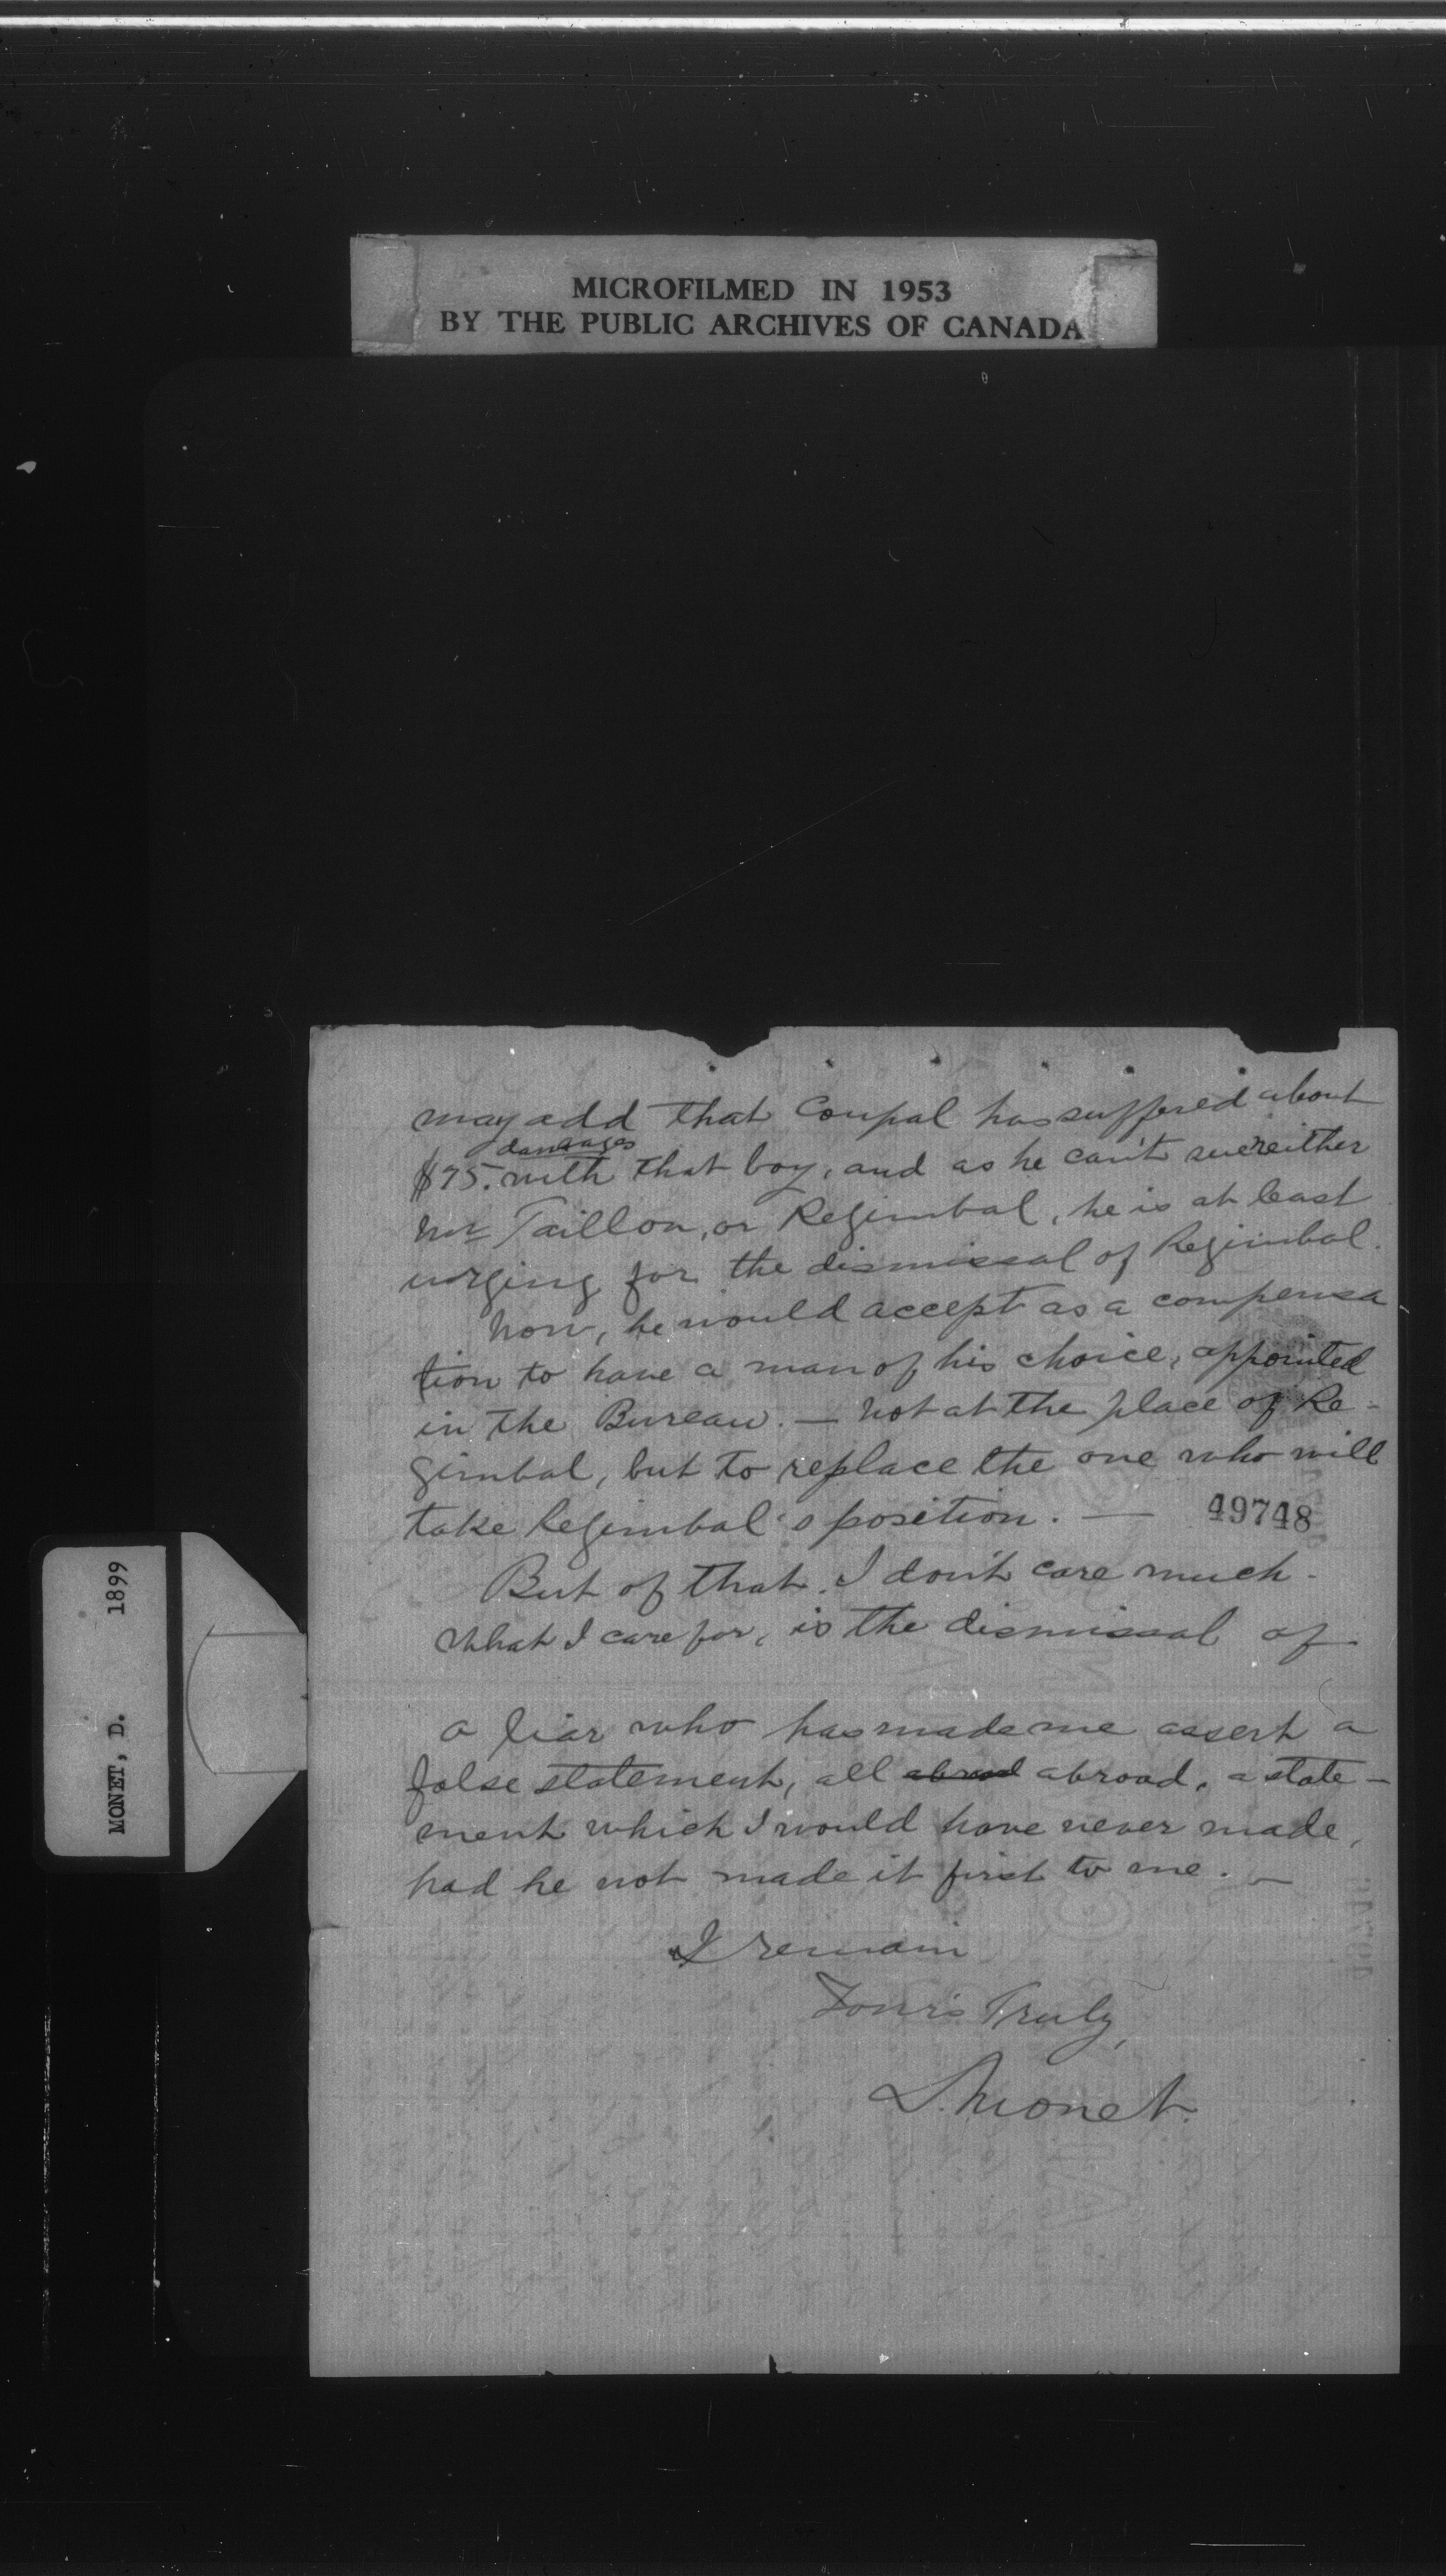 MICROFILMED IN 1953
BY THE PUBLIC ARCHIVES OF CANADA
may add that Coupal has suffered about
damages
$75. with that boy, and as he can't sue either
Mr Taillon, or Regimbal, he is at least
urging for the dismissal of Regimbal.
Now, he would accept as a compensa
tion to have a man of his choice, appointed
in the Bureau. — Not at the place of Re-
gimbal, but to replace the one who will
take Regimbal's position. —
49748
But of that, I don't care much.
What I care for, is the dismissal of
a liar who has made me assert a
false statement, all abroad abroad, a state-
ment which I would have never made,
had he not made it first to me. —
I remain
Your's Truly,
D. Monet.
MONET, D. 1899